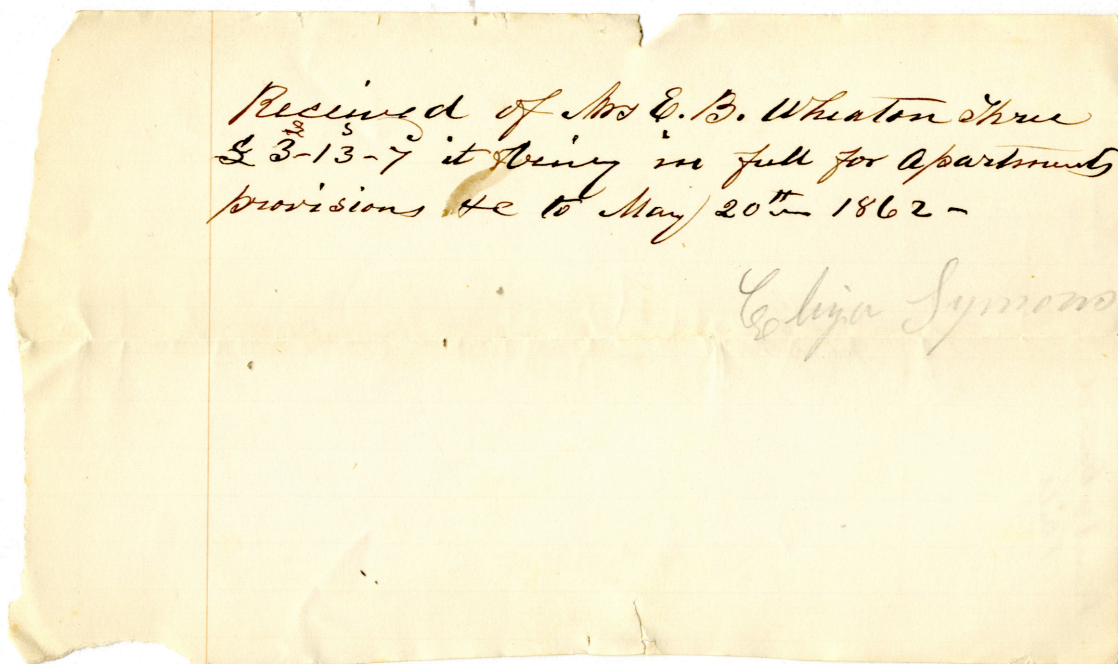 Received of Mrs E. B. Wheaton Three
£ 3-13-7 it being in full for Apartments
provisions &c to May 20th 1862-
Eliza Symons